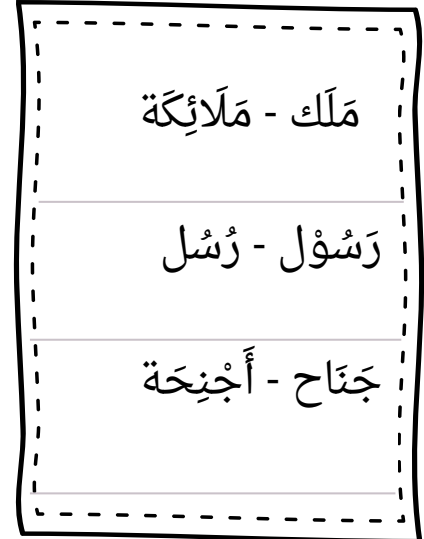 مَلَك - مَلَائِكَة
رَسُوْل - رُسُل
جَنَاح - أَجْنِحَة